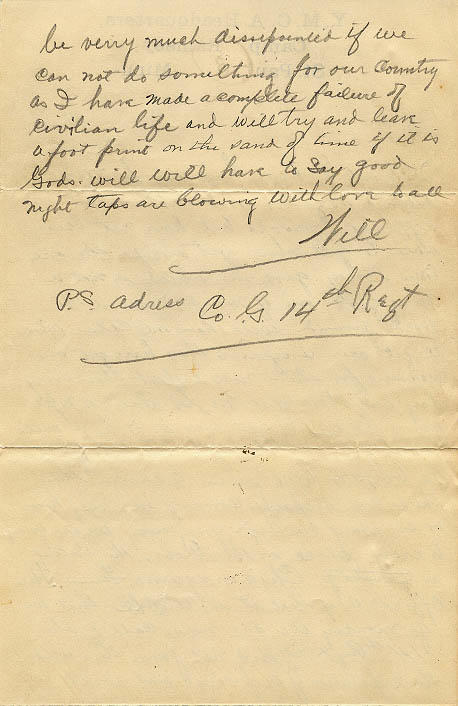 be verry much disapointed if we
can not do something for our Country
as I have made a complete failure of
civilian life and will try and leave
a foot print on the sand of time if it is
Gods. will will have to say good
night taps are blowing with love to all
Will
P.S. adress Co. G. 14th Regt